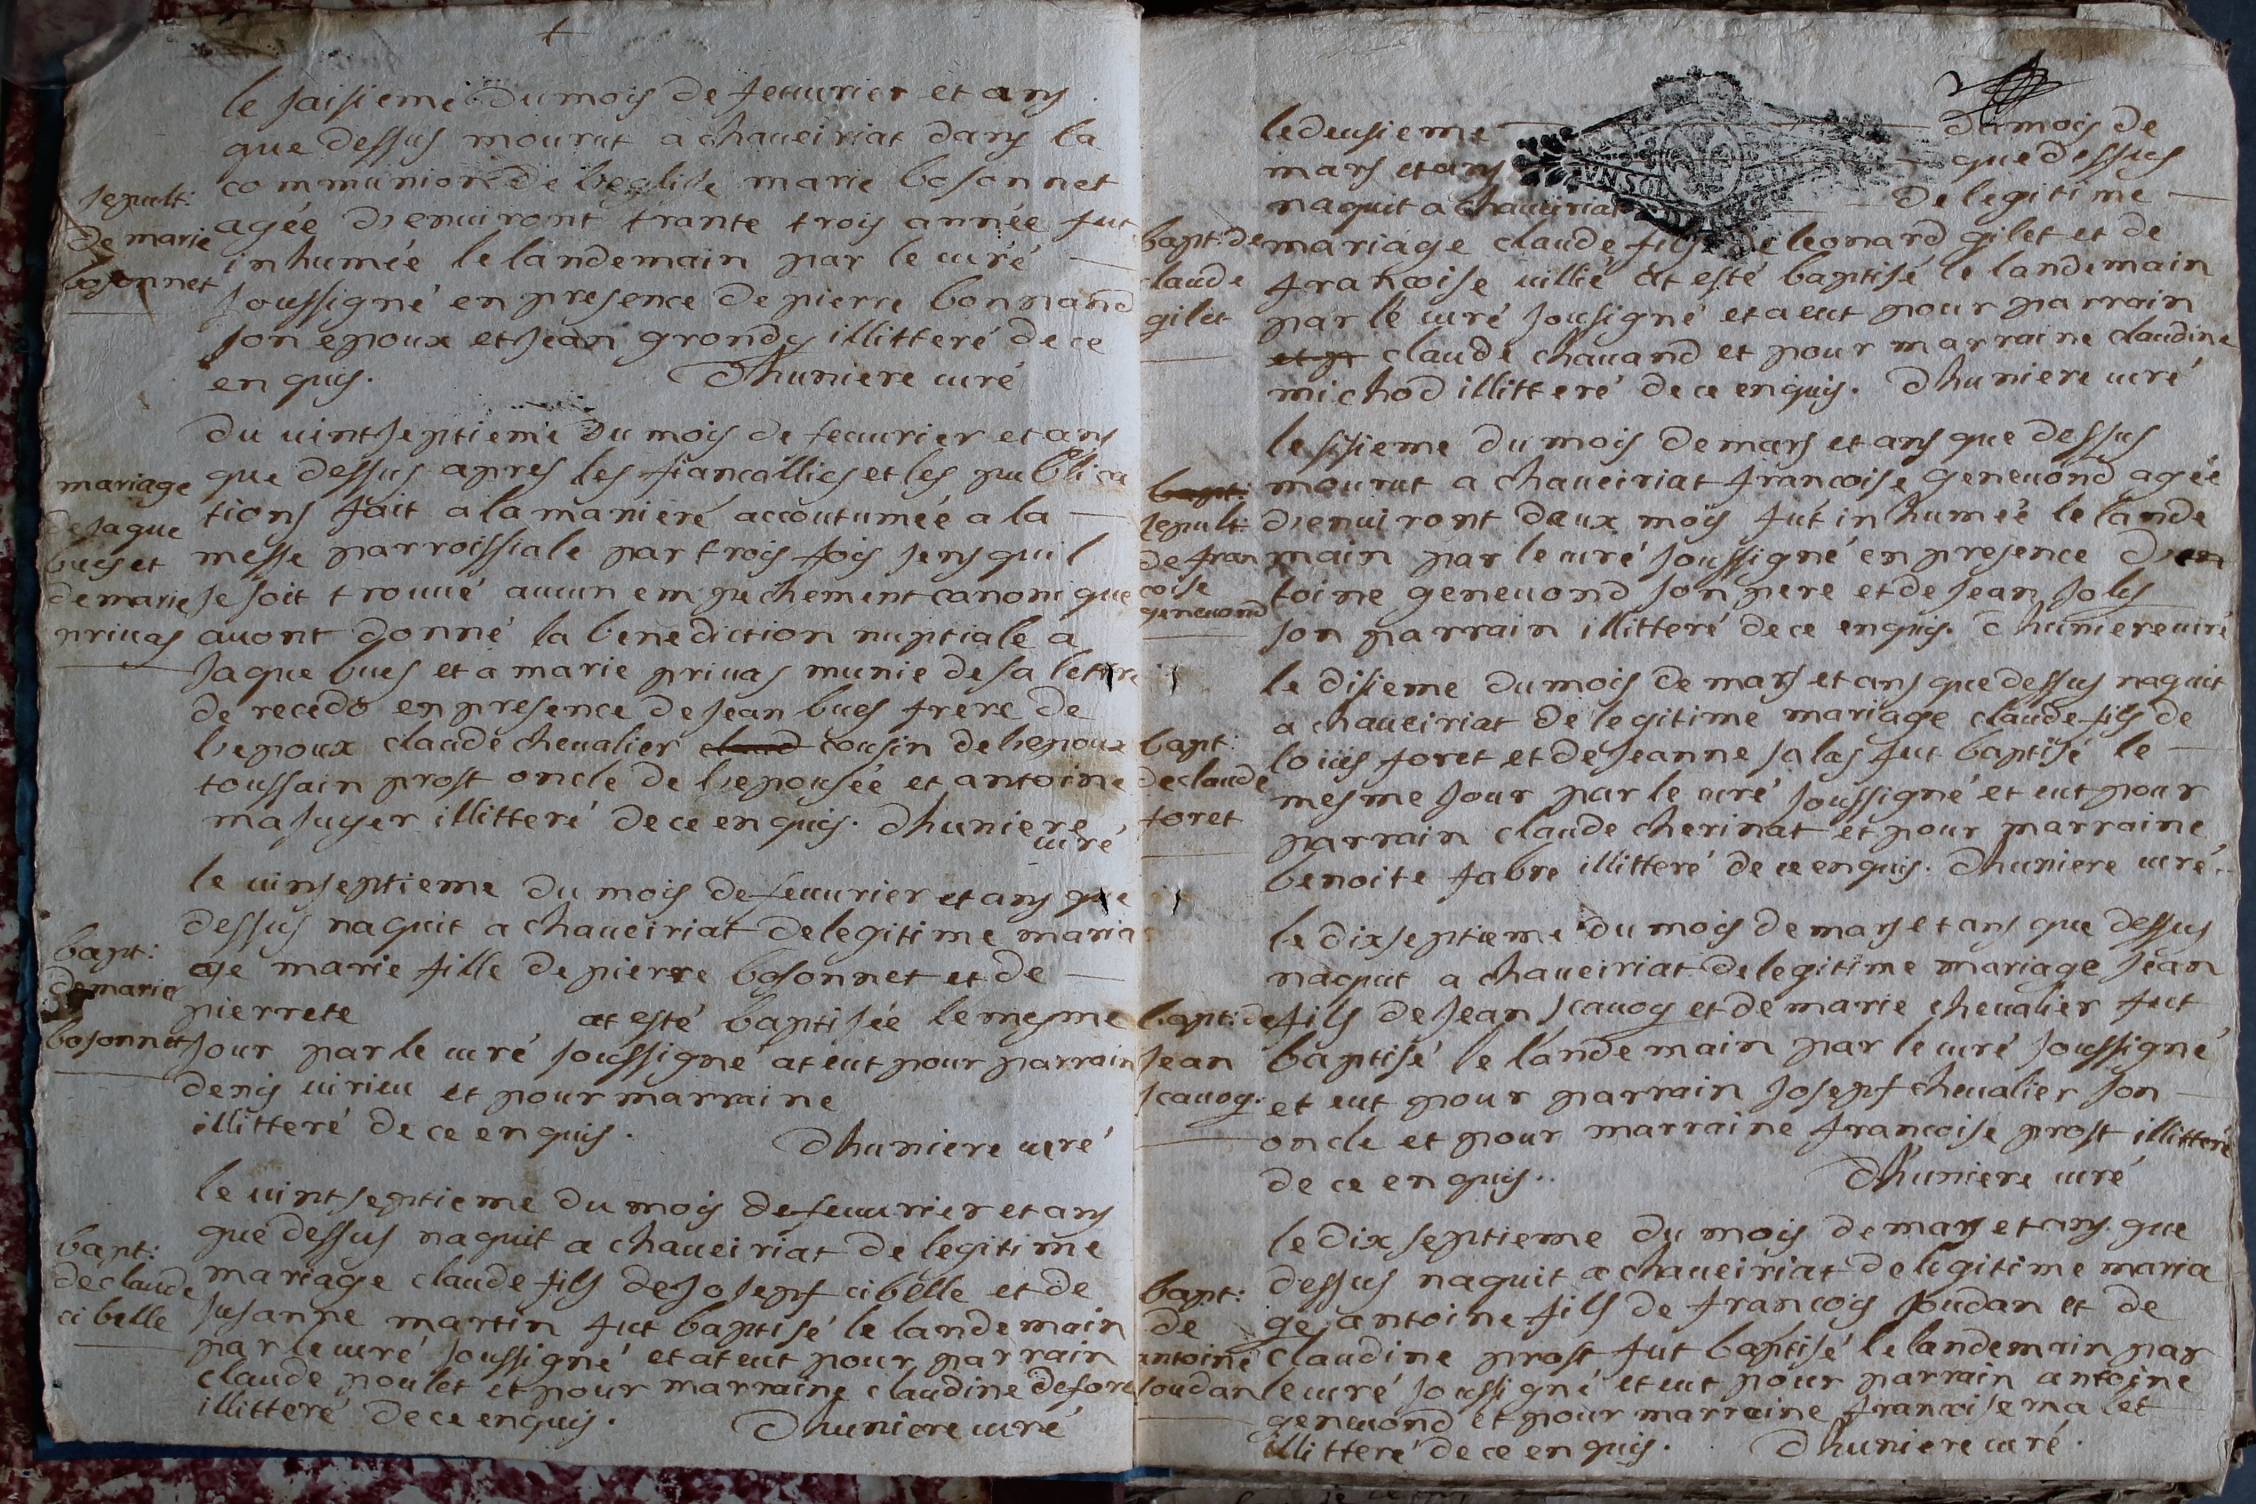 le saisieme du mois de feuurier et ans
que dessus mourut a chaueiriat dans la
communion de l'eglise marie bosonnet
sepult:
de marie
bosonnet
agée d'enuiront trante trois année fut
inhumée le landemain par le curé
soussigné en presence de pierre bonnand
son epoux et jean grondy illitteré de ce
enquis. Dhuniere curé
du uintseptieme du mois de feuurier et ans
que dessus apres les fiancallies et les publica
mariage
de jaque
bues et
de marie
priuas
tions fait a la maniere accoutumée a la
messe parroissiale par trois fois sens qu'il
se soit trouué aucun empechement canonique
auont donné la benediction nuptiale a
jaque bues et a marie priuas munie de sa lettre
de recedo en presence de jean bues frere de
l'epoux claude cheualier claud cousin de l'epoux
toussain prost oncle de l'epousée et antoine
majuyer illitteré de ce enquis. Dhuniere
curé
le uinseptieme du mois de feuurier et ans que
dessus naquit a chaueiriat de legitime maria
bapt:
de marie
bosonnet
ge marie fille de pierre bosonnet et de
pierrete at esté baptisée le mesme
jour par le curé soussigné at eut pour parrain
denis uirieu et pour marraine
illitteré de ce enquis. Dhuniere curé
le uintseptieme du mois de feuurier et ans
que dessus naquit a chaueiriat de legitime
bapt:
de claude
cibelle
mariage claude fils de josepf cibelle et de
susanne martin fut baptisé le landemain
par le curé soussigné et at eut pour parrain
claude poulet et pour marraine claudine defore
illitteré de ce enquis. Dhuniere curé
le deusieme du mois de
mars et ans que dessus
naquit a chaueiriat de legitime
bapt: de
claude
gilet
mariage claude fils de leonard gilet et de
francoise uillié at esté baptisé le landemain
par le curé sousigné et a eut pour parrain
et pr claude chauand et pour marraine claudine
michod illitteré de ce enquis. Dhuniere curé
le sisieme du mois de mars et ans que dessus
bapt:
sepult:
de fran
coise
geneuond
mourut a chaueiriat francoise geneuond agée
d'enuiront deux mois fut inhumée le lande
main par le curé soussigné en presence d'en
toine geneuond son pere et de jean joles
son parrain illitteré de ce enquis. Dhuniere curé
le disieme du mois de mars et ans que dessus naquit
a chaueiriat de legitime mariage claude fils de
bapt:
de claude
foret
loüis foret et de jeanne salas fut baptisé le
mesme jour par le curé soussigné et eut pour
parrain claude cherinat et pour marraine
benoite fabre illitteré de ce enquis. Dhuniere curé.
le dixseptieme du mois de mars et ans que dessus
naquit a chaueiriat de legitime mariage jean
bapt: de
jean
scauoy.
fils de jean scauoy et de marie cheualier fut
baptisé le landemain par le curé soussigné
et eut pour parrain josepf cheualier son
oncle et pour marraine francoise prost illitteré
de ce enquis. Dhuniere curé
le dixseptieme du mois de mars et ans que
dessus naquit a chaueiriat de legitime maria
bapt:
de
antoine
soudan
ge antoine fils de francois soudan et de
claudine prost fut baptisé le landemain par
le curé soussigné et eut pour parrain antoine
geneuond et pour marraine francoise malet
illitteré de ce enquis. Dhuniere curé.